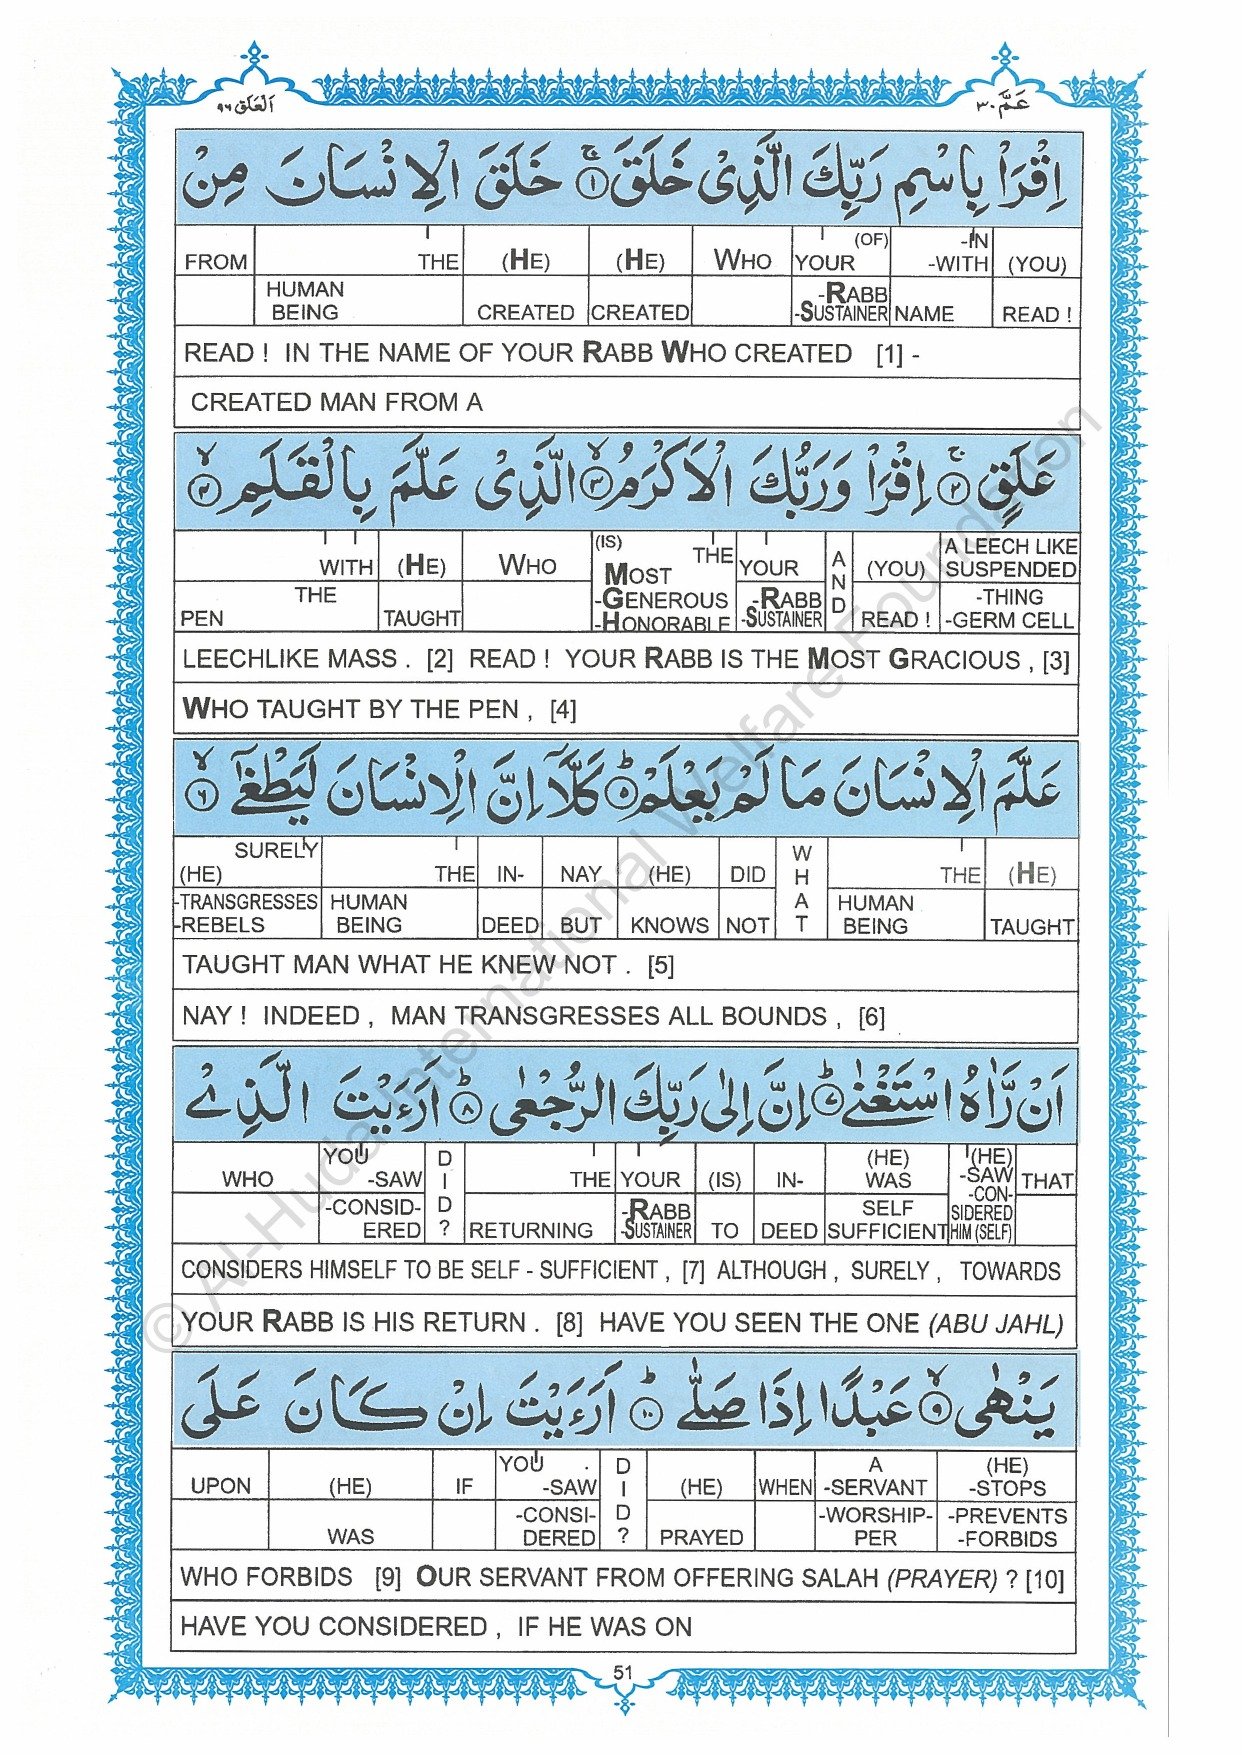 اَلْعَلَق ٩٦
عَمَّ ٣٠
اِقْرَاْ بِاسْمِ رَبِّكَ الَّذِیْ خَلَقَ ۚ ١ خَلَقَ الْاِنْسَانَ مِنْ
FROM | THE HUMAN BEING | (HE) CREATED | (HE) CREATED | WHO | (OF) YOUR -RABB -SUSTAINER | -IN -WITH NAME | (YOU) READ !
READ ! IN THE NAME OF YOUR RABB WHO CREATED [1] -
CREATED MAN FROM A
عَلَقٍ ۚ ٢ اِقْرَاْ وَرَبُّكَ الْاَكْرَمُ ۙ ٣ الَّذِیْ عَلَّمَ بِالْقَلَمِ ۙ ٤
WITH THE PEN | (HE) TAUGHT | WHO | (IS) THE MOST -GENEROUS -HONORABLE | YOUR -RABB -SUSTAINER | AND | (YOU) READ ! | A LEECH LIKE SUSPENDED -THING -GERM CELL
LEECHLIKE MASS . [2] READ ! YOUR RABB IS THE MOST GRACIOUS , [3]
WHO TAUGHT BY THE PEN , [4]
عَلَّمَ الْاِنْسَانَ مَا لَمْ یَعْلَمْ ؕ ٥ كَلَّاۤ اِنَّ الْاِنْسَانَ لَیَطْغٰۤی ۙ ٦
SURELY (HE) -TRANSGRESSES -REBELS | THE HUMAN BEING | IN- DEED | NAY BUT | (HE) KNOWS | DID NOT | WHAT | THE HUMAN BEING | (HE) TAUGHT
TAUGHT MAN WHAT HE KNEW NOT . [5]
NAY ! INDEED , MAN TRANSGRESSES ALL BOUNDS , [6]
اَنْ رَّاٰهُ اسْتَغْنٰی ؕ ٧ اِنَّ اِلٰی رَبِّكَ الرُّجْعٰی ؕ ٨ اَرَءَیْتَ الَّذِیْ
WHO | YOU -SAW -CONSID- ERED | DID? | THE RETURNING | YOUR -RABB -SUSTAINER | (IS) TO | IN- DEED | (HE) WAS SELF SUFFICIENT | (HE) -SAW -CON- SIDERED HIM (SELF) | THAT
CONSIDERS HIMSELF TO BE SELF - SUFFICIENT , [7] ALTHOUGH , SURELY , TOWARDS
YOUR RABB IS HIS RETURN . [8] HAVE YOU SEEN THE ONE (ABU JAHL)
یَنْهٰی ۙ ٩ عَبْدًا اِذَا صَلّٰی ؕ ١٠ اَرَءَیْتَ اِنْ كَانَ عَلَی
UPON | (HE) WAS | IF | YOU -SAW -CONSI- DERED | DID? | (HE) PRAYED | WHEN | A -SERVANT -WORSHIP- PER | (HE) -STOPS -PREVENTS -FORBIDS
WHO FORBIDS [9] OUR SERVANT FROM OFFERING SALAH (PRAYER) ? [10]
HAVE YOU CONSIDERED , IF HE WAS ON
51
© Al-Huda International Welfare Foundation